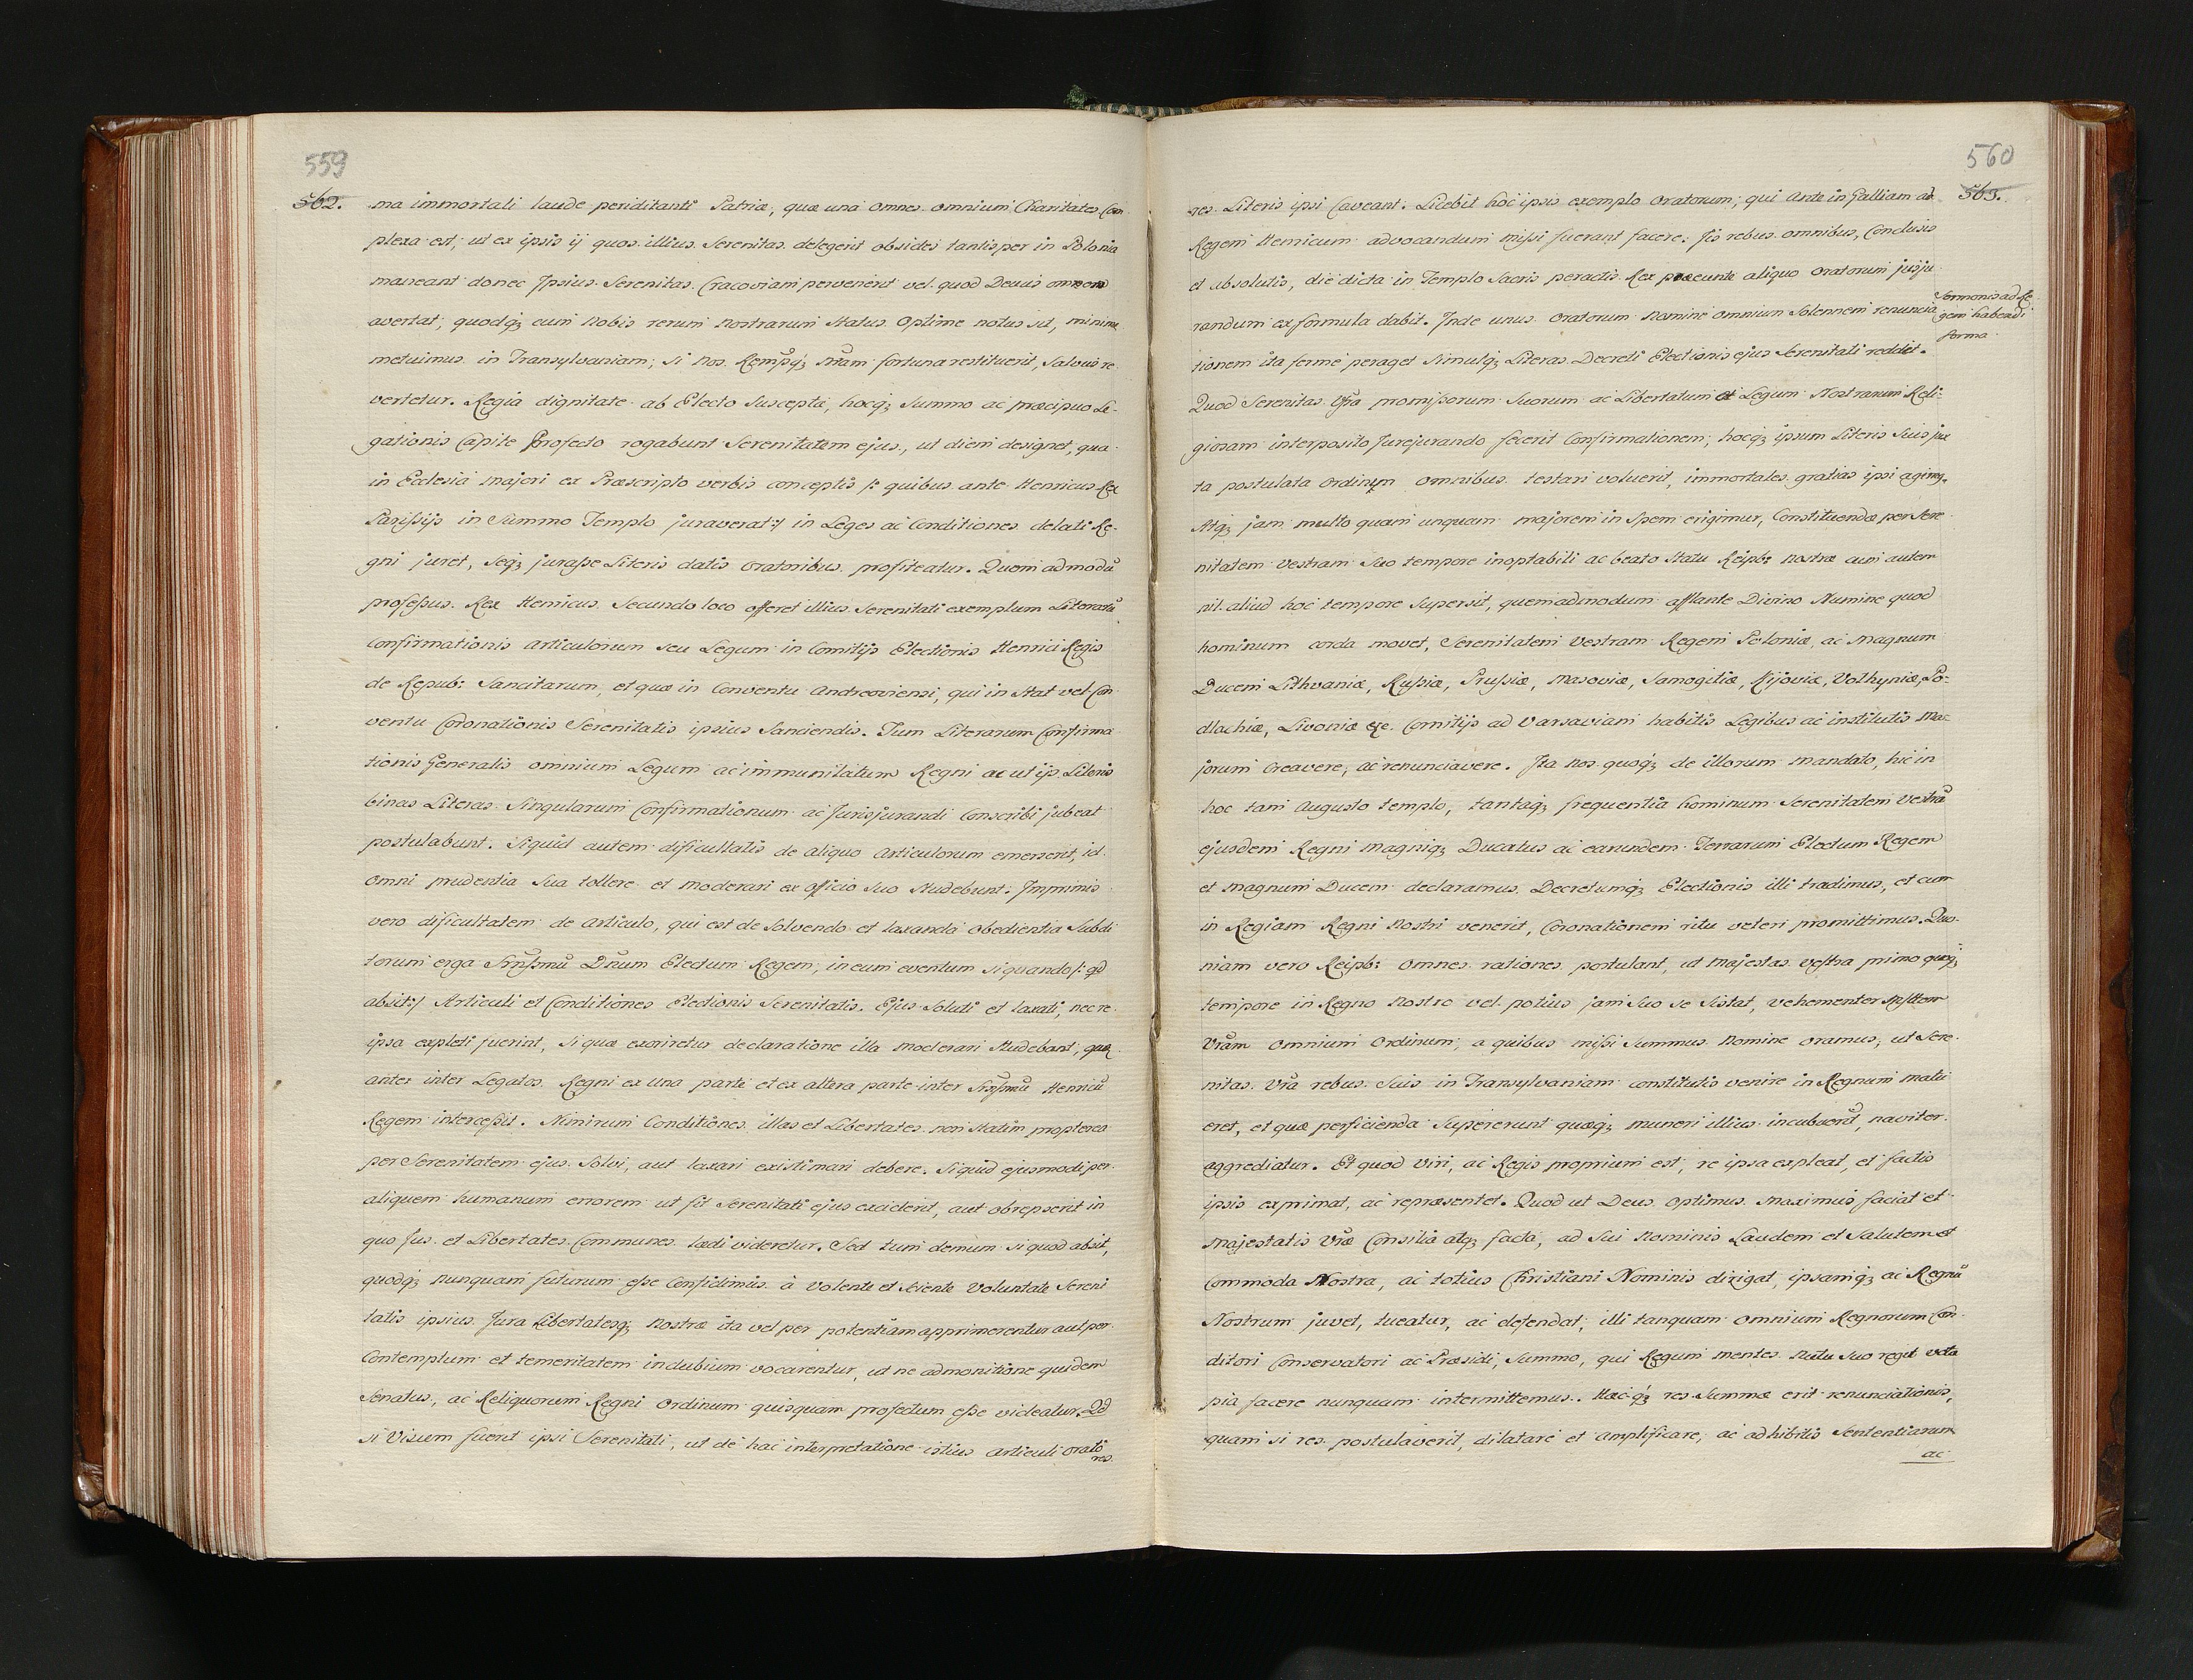 559
562.
ma immortali laude periditanti Patriæ, quæ una omnes omnium Charitates Com
plexa est, ut ex ipsis ij quos illius Serenitas delegerit obsides tantisper in Polonia
maneant donec Ipsius Serenitas Cracoviam pervenerit vel quod Deus omen
avertat, quodq; cum Nobis rerum nostrarum Status Optime notus sit, minime
metuimus in Transylvaniam, Si nos Rempq; nram fortuna restituerit, Salvus re
vertetur. Regia dignitate ab Electo Suscepta, hocq; Summo ac præcipuo Le-
gationis Capite Profecto rogabunt Serenitatem ejus, ut diem designet, qua
in Ecclesia majori ex Præscripto verbis conceptis /: quibus ante Henricus Rex
Parissijs in Summo Templo juraverat :/ in Leges ac Conditiones delati Re-
gni juret, Seq; jurasse Literis datis oratoribus profiteatur. Quem admodũ
professus Rex Henricus Secundo loco offeret illius Serenitati exemplum Literarũ
Confirmationis articulorum seu Legum in Comitijs Electionis Henrici Regis
de Repub: Sancitarum, et quæ in Conventu Andreoviensi, qui in Stat vel Con
ventu Coronationis Serenitatis ipsius Sanciendis. Tum Literarum Confirma
tionis Generalis omnium Legum ac immunitatum Regni ac ut ijs Literis
binas Literas Singularum Confirmationum ac Jurisjurandi Conscribi jubeat
postulabunt. Siquid autem dificultatis de aliquo Articulorum emerserit, id
omni prudentia Sua tollere et moderari ex officio Suo Studebunt: Imprimis
vero dificultatem de articulo, qui est de Solvendo et laxanda obedientia Subdi
torum erga Srnssmũ Dnum Electum Regem, in eum eventum siquando /: qd
absit :/ Articuli et Conditiones Electionis Serenitatis Ejus Soluti et laxati, nec re
ipsa expleti fuerint, Si quæ exoriretur declaratione illa moderari Studebant, quæ
antea inter Legatos Regni ex una parte et ex altera parte inter Srnssmũ Henricũ
Regem intercessit. Nimirum Conditiones illas et Libertates non Statim propterea
per Serenitatem ejus Solvi, aut laxari existimari debere. Siquid ejusmodi per
aliquem humanum errorem ut fit Serenitati ejus exciderit, aut obrepserit in
quo Jus et Libertates Communes lædi videretur. Sed tum demum si quod absit,
quodq; nunquam futurum esse Confidimus à Volente et Sciente Voluntate Sereni
tatis ipsius Jura Libertatesq; nostræ ita vel per potentiam apprimerentur aut per
Contemptum et temeritatem in dubium vocarentur, ut ne admonitione quidem
Senatus, ac Reliquorum Regni Ordinum quisquam profectum esse videatur. Qd
si Visum fuerit ipsi Serenitati, ut de hac interpretatione istius articuli orato
res
560
563.
res Literis ipsi Caveant. Licebit hoc ipsis exemplo Oratorum, qui Ante in Galliam ad
Regem Henricum advocandum missi fuerant facere. Jis rebus omnibus, Conclusis
et absolutis, die dicta in Templo Sacris peractis Rex præeunte aliquo Oratorum jusju
randum ex formula dabit. Inde unus Oratorum Nomine omnium Solennem renuncia
tionem ita ferme peraget Simulq; Literas Decreti Electionis ejus Serenitati reddet.
Sermonis ad Re
gem habendi
forma
Quod Serenitas Vra promissorum Suorum ac Libertatum et Legum Nostrarum Reli-
giosam interposito Jurejurando fecerit Confirmationem, hocq; ipsum Literis Suis jux
ta postulata Ordinum omnibus testari voluerit, immortales gratias ipsi agimq.
Atq; jam multo quam unquam majorem in Spem erigimur, Constituendæ per Sere
nitatem Vestram Suo tempore inoptabili ac beato Statu Reipb: nostræ cum autem
nil aliud hoc tempore Supersit, quemadmodum afflante Divino Numine quod
hominum corda movet, Serenitatem Vestram Regem Poloniæ, ac Magnum
Ducem Lithvaniæ, Russiæ, Prussiæ, Masoviæ, Samogitiæ, Kijoviæ, Volhyniæ, Po-
dlachiæ, Livoniæ etc. Comitijs ad Varsaviam habitis Legibus ac institutis Ma-
jorum Creavere, ac renunciavere. Ita nos quoq; de illorum mandato, hic in
hoc tam Augusto templo, tantaq; frequentia hominum Serenitatem Vestrã
ejusdem Regni Magniq; Ducatus ac earundem Terrarum Electum Regem
et Magnum Ducem declaramus Decretumq; Electionis illi tradimus, et cum
in Regiam Regni Nostri venerit, Coronationem ritu veteri promittimus. Quo-
niam vero Reipb: omnes rationes postulant, ut Majestas vestra primo quoq;
tempore in Regno Nostro vel potius jam Suo se Sistat, vehementer Msttem
Vram omnium Ordinum, a quibus missi Summus Nomine oramus, ut Sere
nitas Vra rebus Suis in Transylvaniam constitutis venire in Regnum matu
eret, et quæ perficienda Supererunt quæq; muneri illius incubuerũt, naviter
aggrediatur. Et quod Viri, ac Regis proprium est, re ipsa expleat, et factis
ipsis exprimat, ac repræsentet. Quod ut Deus Optimus Maximus faciat et
Majestatis Vræ Consilia atq; facta, ad Sui Nominis Laudem et Salutem et
Commoda Nostra, ac totius Christiani Nominis dirigat, ipsamq; ac Regnũ
Nostrum juvet, tueatur, ac defendat, illi tanquam Omnium Regnorum Con-
ditori Conservatori ac Præsidi, Summo, qui Regum mentes Nutu Suo regit vota
pia facere nunquam intermittemus. Hæc q; res Summæ erit renunciationis,
quam si res postulaverit, dilatare et amplificare, ac adhibitis Sententiarum
ac